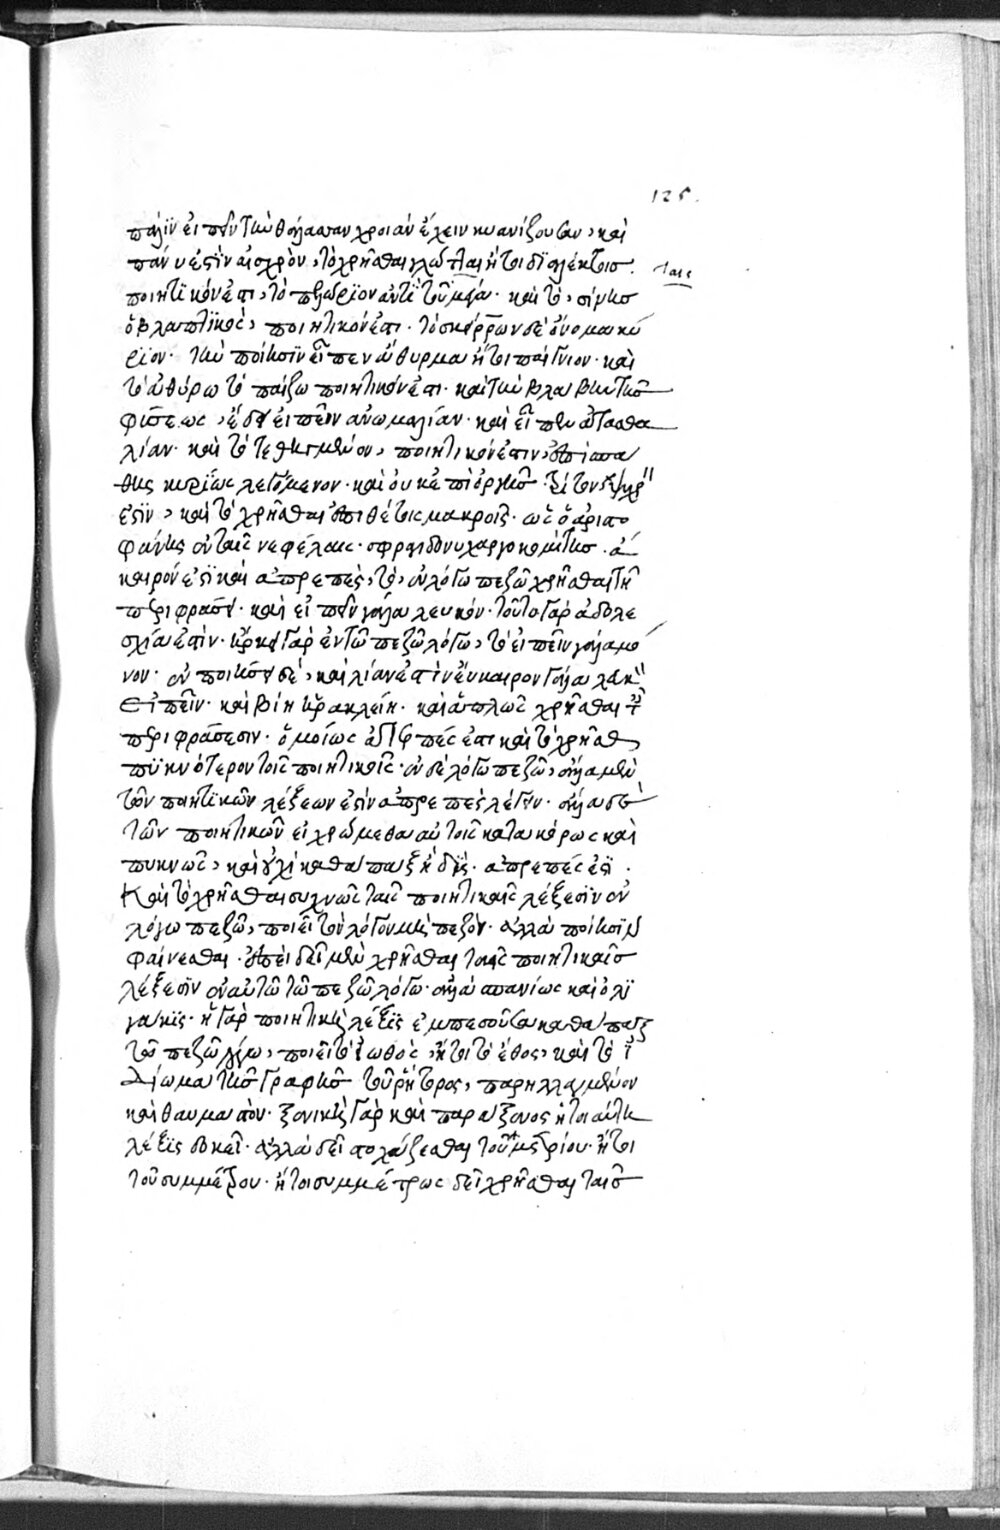 125.
πάλιν εἰπεῖν τὴν θάλασσαν χροιὰν ἔχειν κυανίζουσαν, καὶ
πάνυ ἐστὶν αἰσχρὸν, τὸ χρῆσθαι γλώτταις ἤτοι διαλέκτοις
ταῖς
ποιητικόν ἐστι, τὸ πελώριον ἀντὶ τοῦ μέγα. καὶ τὸ, σίνις
ὁ βλαπτικὸς, ποιητικόν ἐστι. τὸ σκείρρων δὲ ὄνομα κύ
ριον. τὴν ποίησιν εἶπεν ἄθυρμα ἤτοι παίγνιον. καὶ
τὸ ἀθύρω τὸ παίζω ποιητικόν ἐστι. καὶ τὴν βλάβην τῆς
φύσεως, ἔδει εἰπεῖν ἀνωμαλίαν. καὶ εἶπεν ἀτασθα
λίαν. καὶ τὸ τεθηγμένον, ποιητικόν ἐστιν,
κυρίως λεγόμενον. καὶ οὐκ
ἐστιν, καὶ τὸ χρῆσθαι ἐπιθέτοις μακροῖς. ὡς ὁ ἀριστο
φάνης ἐν ταῖς νεφέλαις. σφραγιδονυχαργοκομήτης. ἄ
καιρόν ἐστι καὶ ἀπρεπὲς, τὸ, ἐν λόγω πεζῶ χρῆσθαι τῆ
περιφράσει. καὶ εἰπεῖν γάλα λευκόν. τοῦτο γὰρ ἀδολε
σχία ἐστίν. ἤρκει γὰρ ἐν τῶ πεζῶ λόγω, τὸ εἰπεῖν γάλα μό
νον. ἐν ποιήσει δὲ, καὶ λίαν ἐστὶν εὔκαιρον γάλα λευκὸν
εἰπεῖν. καὶ βίη ἡρακλείη. καὶ ἁπλῶς χρῆσθαι τ
περιφράσεσιν. ὁμοίως ἀπρεπές ἐστι καὶ τὸ χρῆσθ
πυκνότερον τοῖς ποιητικοῖς. ἐν δὲ λόγω πεζῶ,
τῶν ποιητικῶν λέξεων ἐστὶν ἀπρεπὲς λέγειν. δὲ
τῶν ποιητικῶν εἰ χρώμεθα αὐτοῖς κατακόρως καὶ
πυκνῶς, καὶ οὐχὶ καθάπαξ ἢ δίς. ἀπρεπές ἐστι.
Καὶ τὸ χρῆσθαι συχνῶς ταῖς ποιητικαῖς λέξεσιν ἐν
λόγω πεζῶ, ποιεῖ τὸν λόγον μὴ πεζὸν. ἀλλὰ ποίησιν
φαίνεσθαι. ἐπεὶ δεῖ μὲν χρῆσθαι ταῖς ποιητικαῖς
λέξεσιν ἐν αὐτῶ τῶ πεζῶ λόγω. ἀλλὰ σπανίως καὶ ὀλι
γάκις. ἡ γὰρ ποιητικὴ λέξις ἐμπεσοῦσα καθάπαξ
τῶ πεζῶ λόγω, ποιεῖ τὸ εἰωθὸς, ἤτοι τὸ ἔθος, καὶ τὸ ἰ
δίωμα τῆς γραφῆς τοῦ ῥήτορος, παρηλλαγμένον
καὶ θαυμαστὸν. ξενικὴ γὰρ καὶ παράξενος ἤτοι αὕτη
λέξις δοκεῖ. ἀλλὰ δεῖ στοχάζεσθαι τοῦ μετρίου. ἤτοι
τοῦ συμμέτρου. ἤτοι συμμέτρως δεῖ χρῆσθαι ταῖς